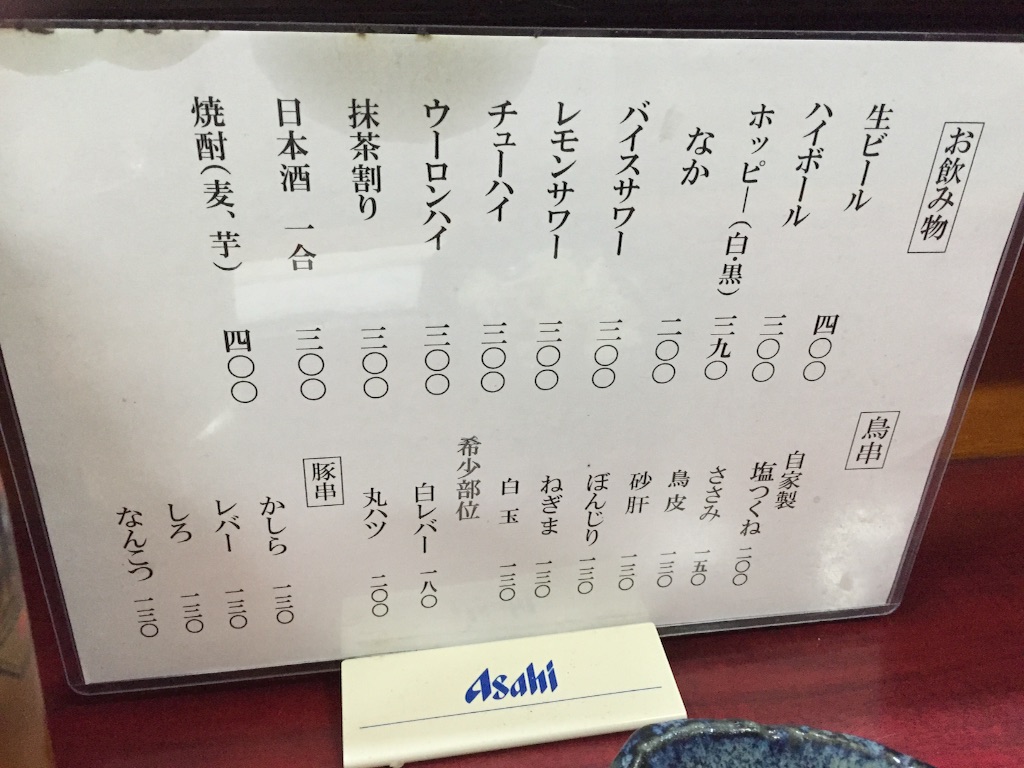 お飲み物
生ビール 四〇〇
ハイボール 三〇〇
ホッピー(白・黒) 三九〇
なか 二〇〇
バイスサワー 三〇〇
レモンサワー 三〇〇
チューハイ 三〇〇
ウーロンハイ 三〇〇
抹茶割り 三〇〇
日本酒 一合 三〇〇
焼酎(麦、芋) 四〇〇
鳥串
自家製
塩つくね 二〇〇
ささみ 一五〇
鳥皮 一三〇
砂肝 一三〇
ぼんじり 一三〇
ねぎま 一三〇
白玉 一三〇
希少部位
白レバー 一八〇
丸ハツ 二〇〇
豚串
かしら 一三〇
レバー 一三〇
しろ 一三〇
なんこつ 一三〇
Asahi